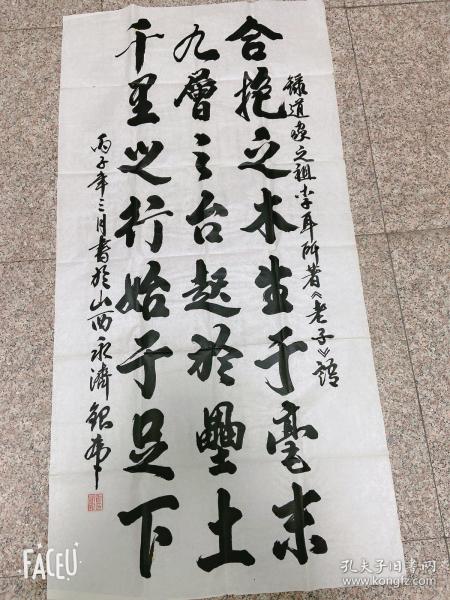 録道家之祖李耳所著《老子》語
合抱之木生于毫末
九層之台起於壘土
千里之行始于足下
丙子年三月書於山西永濟
FACEU
孔夫子旧书网
www.kongfz.com